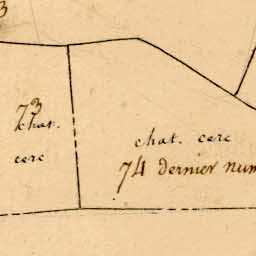 3
73
chat.
cerc
chat. cerc
74 dernier num